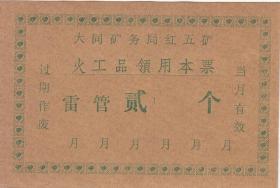 大同矿务局红五矿
火工品领用本票
过期作废
当月有效
雷管贰个
月 月 月 月 月 月